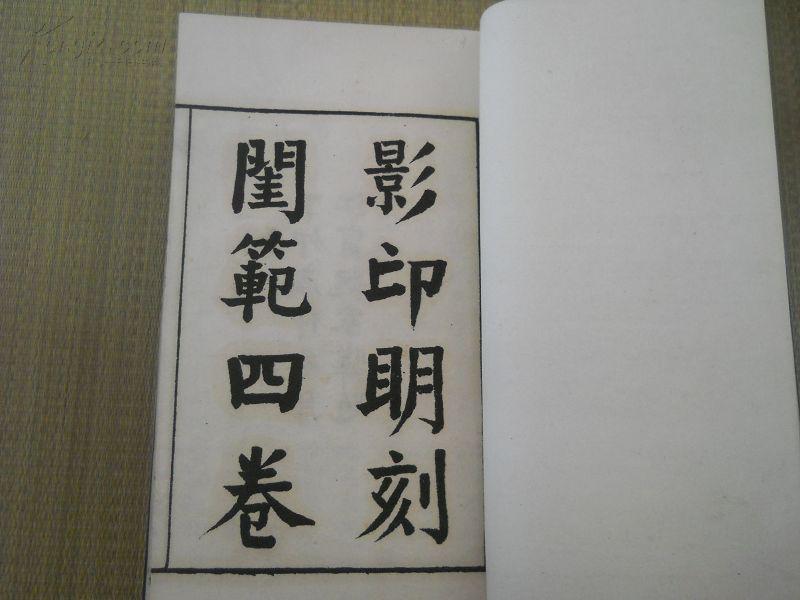 影印明刻
閨範四卷